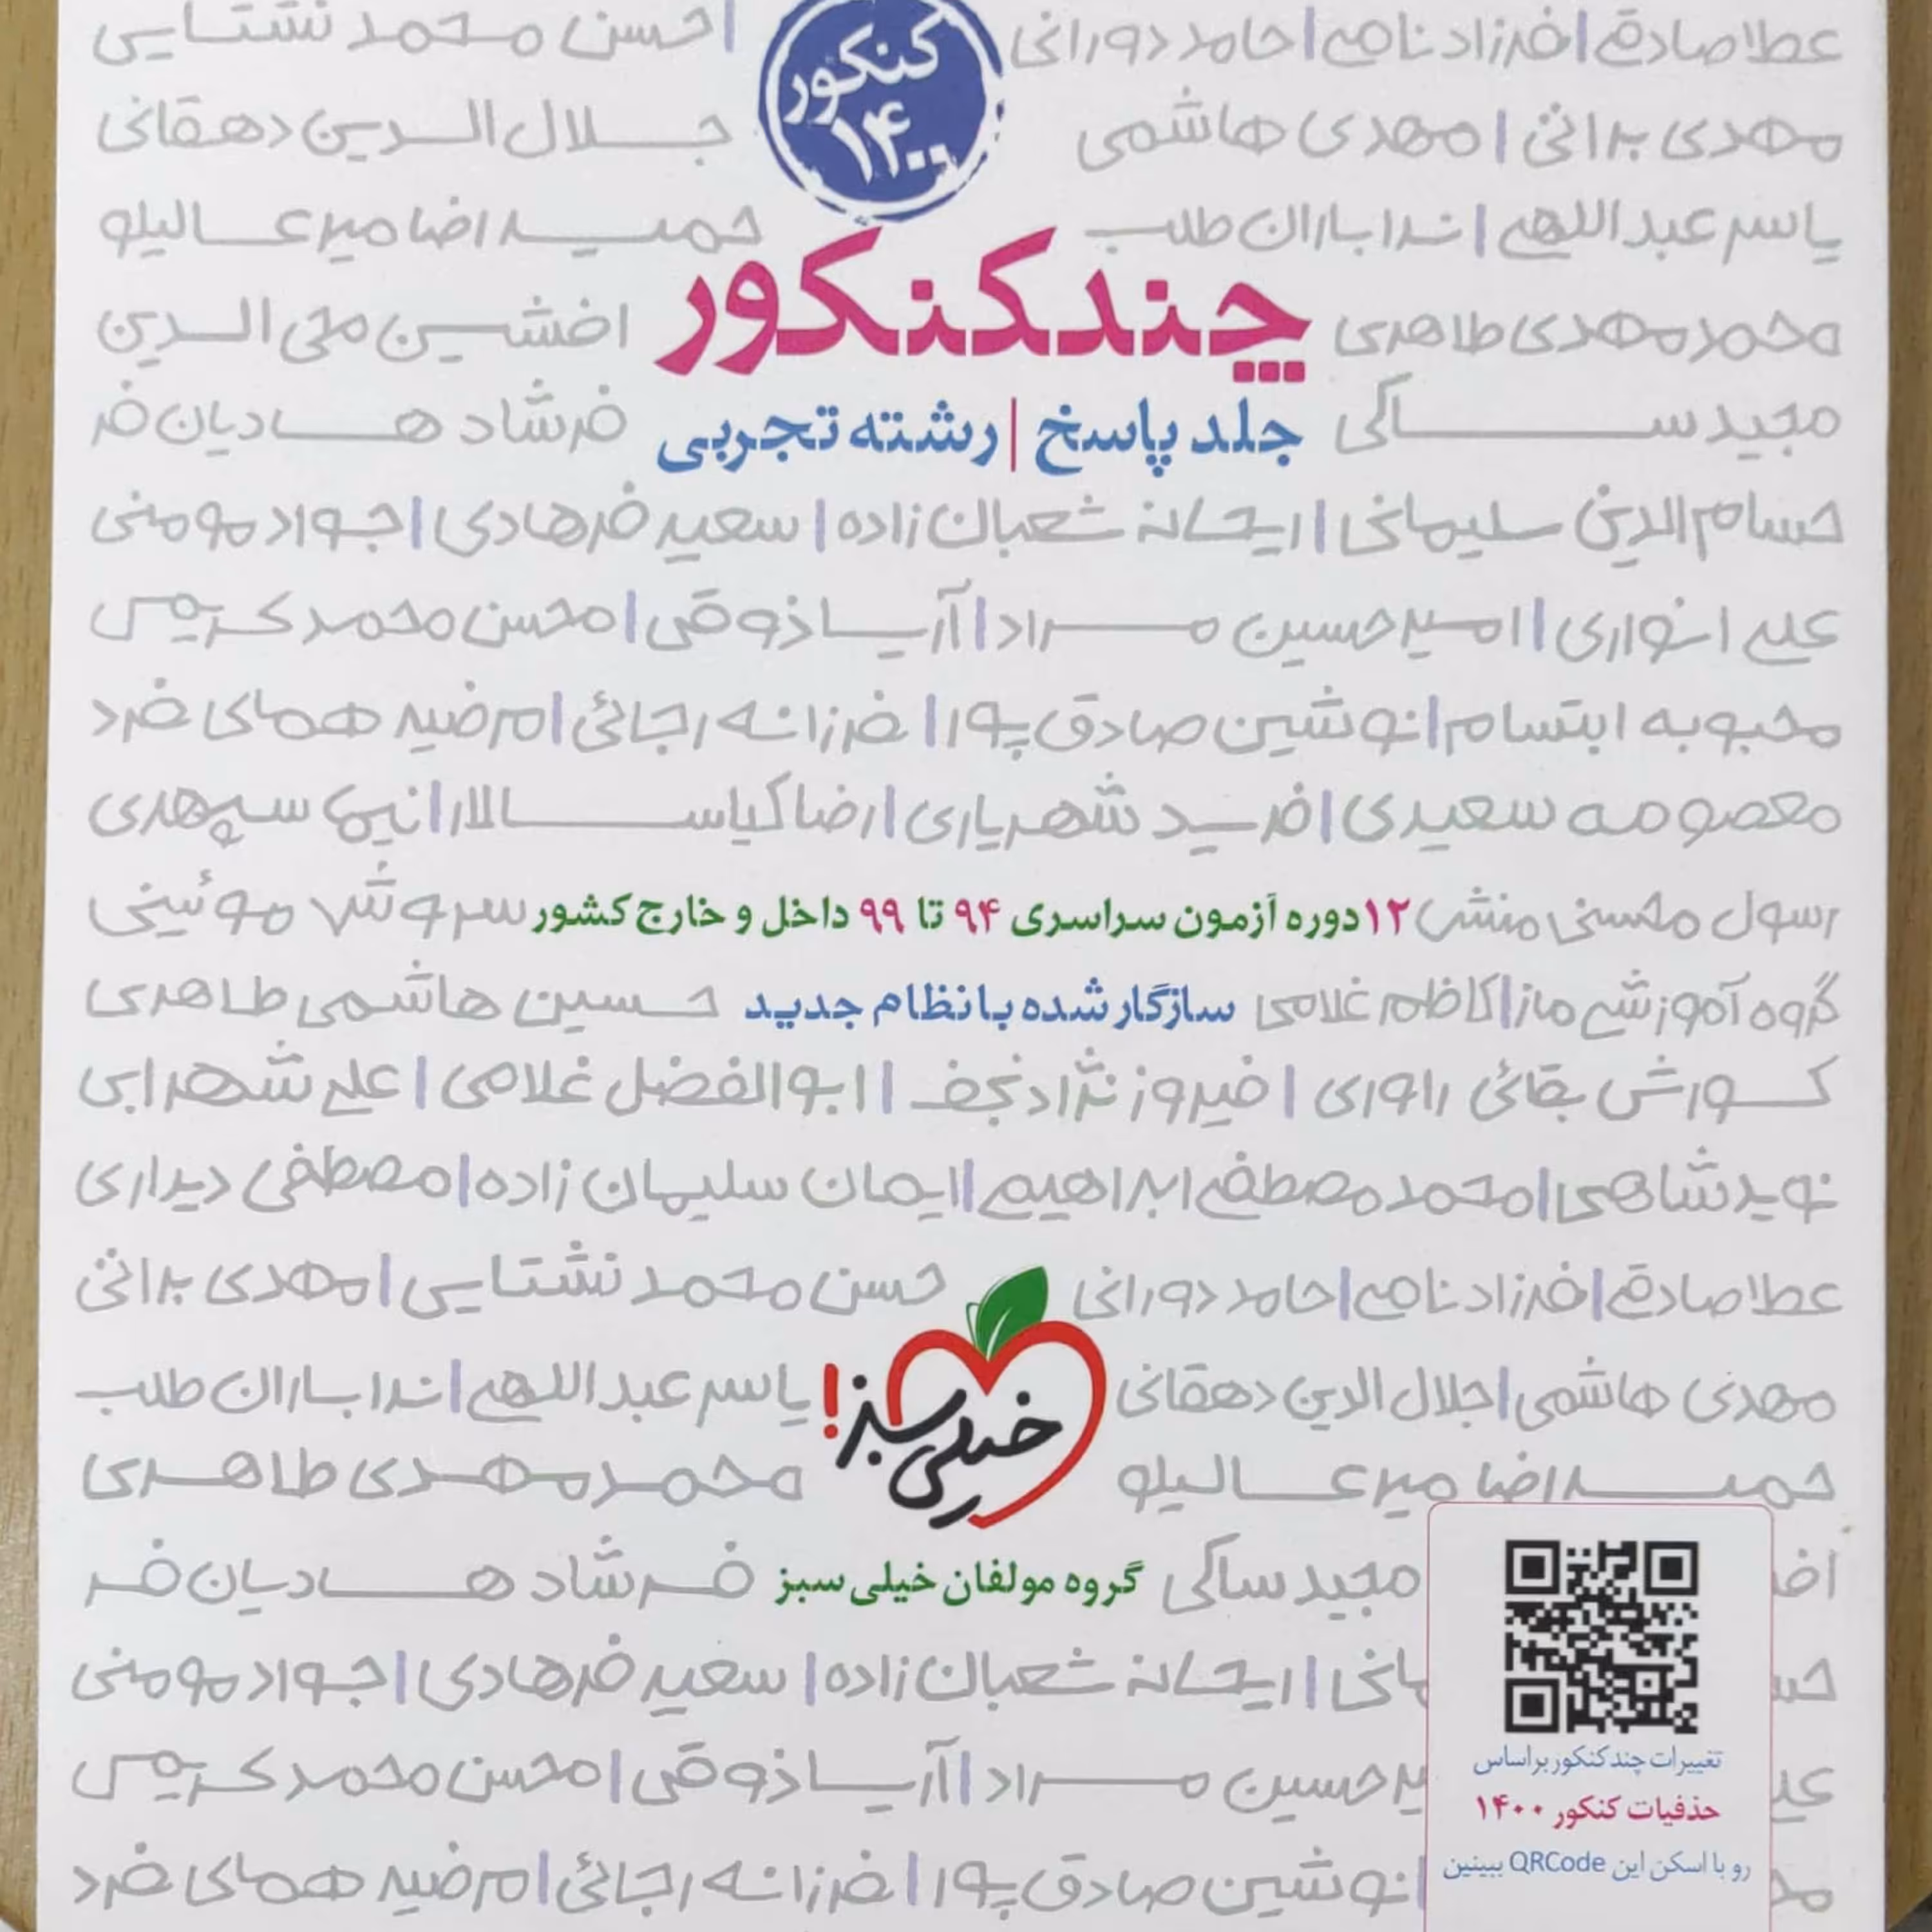 عطا صادقی | فرزاد نامی | حامد دورانی | حسن محمد نشتایی
کنکور
۱۴۰۰
مهدی براتی | مهدی هاشمی جلال الدین دهقانی
یاسر عبداللهی | ندا باران طلب حمیدرضا میرعالیلو
چندکنکور
محمدمهدی طاهری افشین محی الدین
جلد پاسخ | رشته تجربی
مجید ساکی فرشاد هادیان فر
حسام الدین سلیمانی | ریحانه شعبان زاده | سعید فرهادی | جواد مومنی
علی انواری | امیرحسین مراد | آریا ذوقی | محسن محمدکریمی
محبوبه ابتسام | نوشین صادق پور | فرزانه رجائی | مرضیه همای فرد
معصومه سعیدی | فرید شهریاری | رضا کیاسالار | نیما سپهری
رسول محسنی منش ۱۲ دوره آزمون سراسری ۹۴ تا ۹۹ داخل و خارج کشور سروش موئینی
گروه آموزشی ماز | کاظم غلامی سازگار شده با نظام جدید حسین هاشمی طاهری
کورش بقائی راوری | فیروز نژادنجف | ابوالفضل غلامی | علی شهرابی
نوید شاهی | محمدمصطفی ابراهیمی | ایمان سلیمان زاده | مصطفی دیداری
عطا صادقی | فرزاد نامی | حامد دورانی حسن محمد نشتایی | مهدی براتی
مهدی هاشمی | جلال الدین دهقانی یاسر عبداللهی | ندا باران طلب
خیلی سبز!
حمیدرضا میرعالیلو محمدمهدی طاهری
مجید ساکی گروه مولفان خیلی سبز فرشاد هادیان فر
ریحانه شعبان زاده | سعید فرهادی | جواد مومنی
حسین مراد | آریا ذوقی | محسن محمدکریمی
نوشین صادق پور | فرزانه رجائی | مرضیه همای فرد
تغییرات چندکنکور براساس
حذفیات کنکور ۱۴۰۰
رو با اسکن این QRCode ببینین